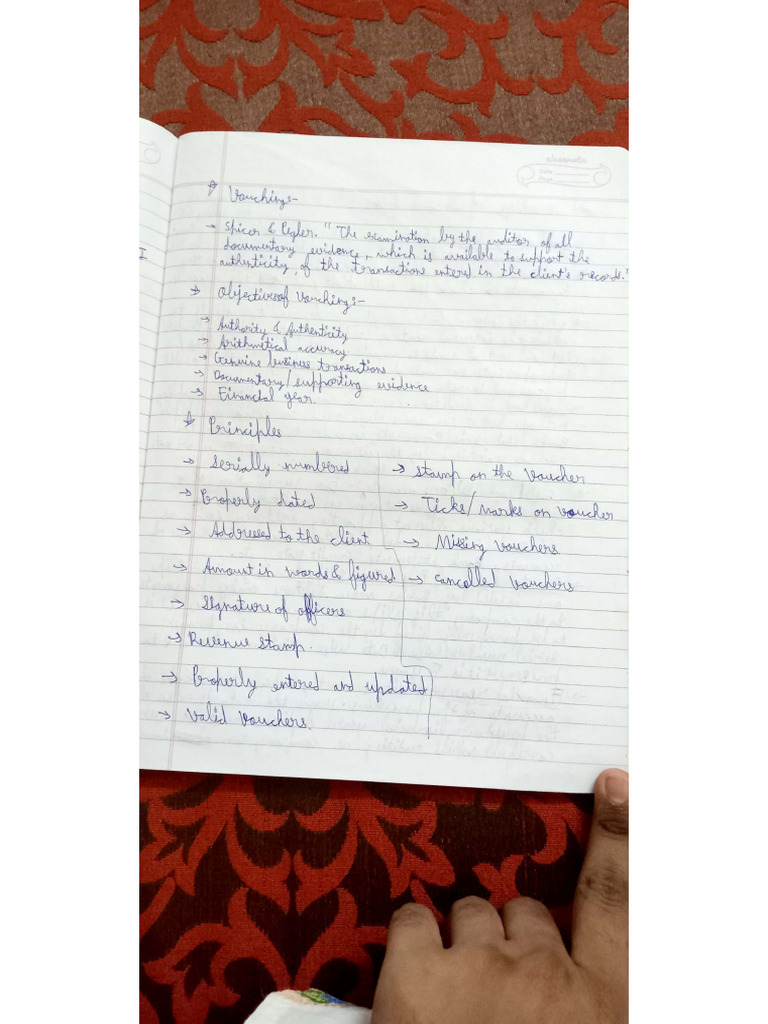 classmate
Date
Page
Vouching:-
→ Spicer & Pegler. "The examination by the auditor, of all
documentary evidence, which is available to support the
authenticity, of the transactions entered in the client's records."
I
→ Objectives of Vouching:-
→ Authority & Authenticity
→ Arithmetical accuracy
→ Genuine business transactions
→ Documentary/supporting evidence
→ Financial year.
Principles
→ Serially numbered
→ Properly dated
→ Addressed to the client
→ Amount in words & figured
→ Signature of officers
→ Revenue stamp.
→ Properly entered and updated
→ Valid Vouchers.
→ Stamp on the Voucher
→ Ticks/Marks on Voucher
→ Missing Vouchers
→ Cancelled Vouchers